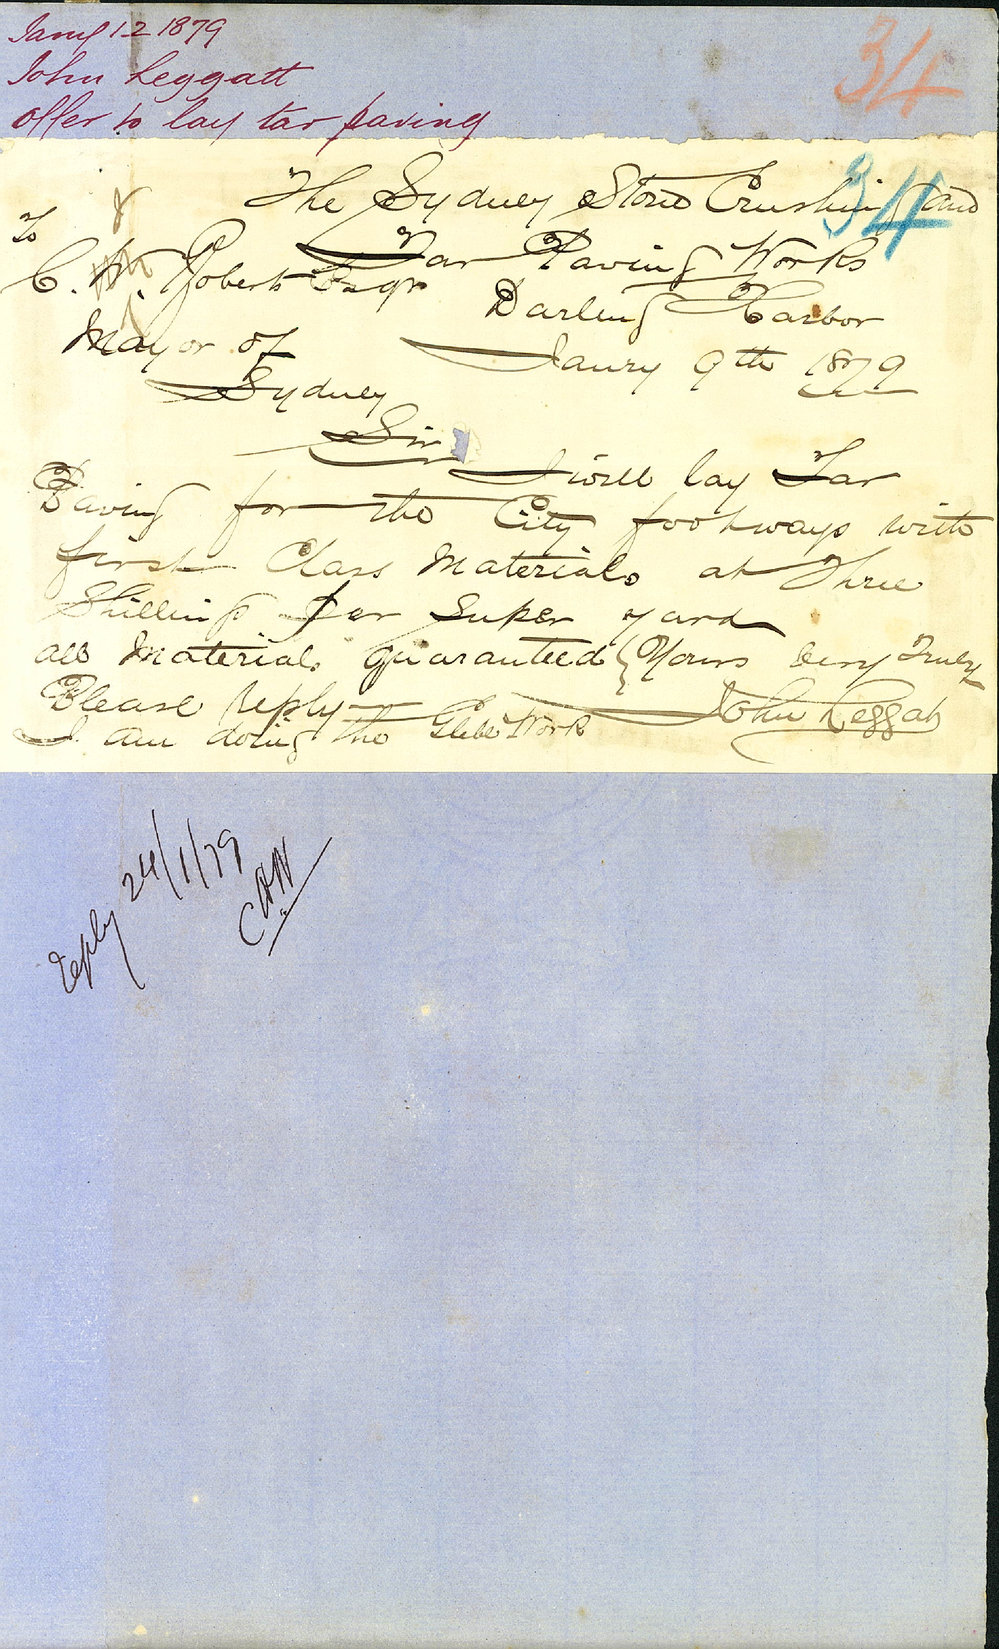 Jany 12 1879
John Leggatt
offer to lay tar paving
34
34
The Sydney Stone Crushing and
Tar Paving Works
Darling Harbor
Jaury 9th 1879
To
C. Roberts Esqr
Mayor of
Sydney
Sir
I will lay Tar
Paving for the City footways with
first Class Materials at Three
Shillings per Super yard
all Materials guaranteed } Yours very Truly
Please reply John Leggatt
I am doing the Glebe Work
reply 24/1/79